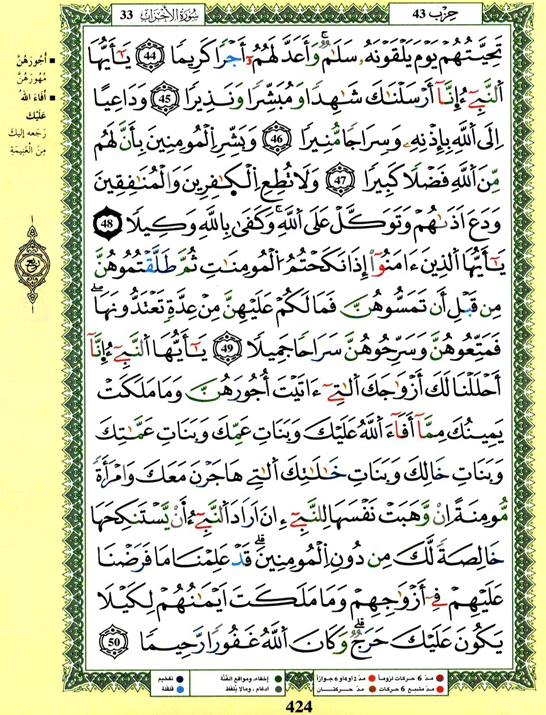 حزب 43
سُورَةُ الأَحْزَابِ 33
تَحِيَّتُهُمْ يَوْمَ يَلْقَوْنَهُۥ سَلَٰمٌ وَأَعَدَّ لَهُمُۥٓ أَجْراً كَرِيماً 44 يَٰٓأَيُّهَا
اَ۬لنَّبِےٓءُ اِنَّآ أَرْسَلْنَٰكَ شَٰهِداً وَمُبَشِّراً وَنَذِيراً 45 وَدَاعِياً
اِلَى اَ۬للَّهِ بِإِذْنِهِۦ وَسِرَاجاً مُّنِيراً 46 وَبَشِّرِ اِ۬لْمُومِنِينَ بِأَنَّ لَهُم
مِّنَ اَ۬للَّهِ فَضْلاً كَبِيراً 47 وَلَا تُطِعِ اِ۬لْكَٰفِرِينَ وَالْمُنَٰفِقِينَ
وَدَعَ اَذَىٰهُمْ وَتَوَكَّلْ عَلَى اَ۬للَّهِ وَكَفَىٰ بِاللَّهِ وَكِيلاً 48
يَٰٓأَيُّهَا اَ۬لذِينَ ءَامَنُوٓاْ إِذَا نَكَحْتُمُ اُ۬لْمُومِنَٰتِ ثُمَّ طَلَّقْتُمُوهُنَّ
مِن قَبْلِ أَن تَمَسُّوهُنَّ فَمَا لَكُمْ عَلَيْهِنَّ مِنْ عِدَّةٍ تَعْتَدُّونَهَا
فَمَتِّعُوهُنَّ وَسَرِّحُوهُنَّ سَرَاحاً جَمِيلاً 49 يَٰٓأَيُّهَا اَ۬لنَّبِےٓءُ اِنَّآ
أَحْلَلْنَا لَكَ أَزْوَٰجَكَ اَ۬لَّٰتِےٓ ءَاتَيْتَ أُجُورَهُنَّ وَمَا مَلَكَتْ
يَمِينُكَ مِمَّآ أَفَآءَ اَ۬للَّهُ عَلَيْكَ وَبَنَاتِ عَمِّكَ وَبَنَاتِ عَمَّٰتِكَ
وَبَنَاتِ خَالِكَ وَبَنَاتِ خَٰلَٰتِكَ اَ۬لَّٰتِے هَاجَرْنَ مَعَكَ وَامْرَأَةً
مُّومِنَةً اِنْ وَّهَبَتْ نَفْسَهَا لِلنَّبِےٓءِ انَ اَرَادَ اَ۬لنَّبِےٓءُ اَنْ يَّسْتَنكِحَهَا
خَالِصَةً لَّكَ مِن دُونِ اِ۬لْمُومِنِينَ قَدْ عَلِمْنَا مَا فَرَضْنَا
عَلَيْهِمْ فِےٓ أَزْوَٰجِهِمْ وَمَا مَلَكَتَ اَيْمَٰنُهُمْ لِكَيْلَا
يَكُونَ عَلَيْكَ حَرَجٌ وَكَانَ اَ۬للَّهُ غَفُوراً رَّحِيماً 50
أُجُورَهُنَّ
مُهُورَهُنَّ
أَفَاءَ اللهُ
عَلَيْكَ
رَجَعه إليكَ
مِنَ الْغَنِيمَةِ
ربع
مدّ 6 حركات لزوماً
مدّ 2 أو 4 أو 6 جوازاً
إخفاء، ومواقع الغُنَّة
تفخيم
مدّ مشبع 6 حركات
مدّ حركتان
ادغام، ومالا يُلفظ
قلقلة
424